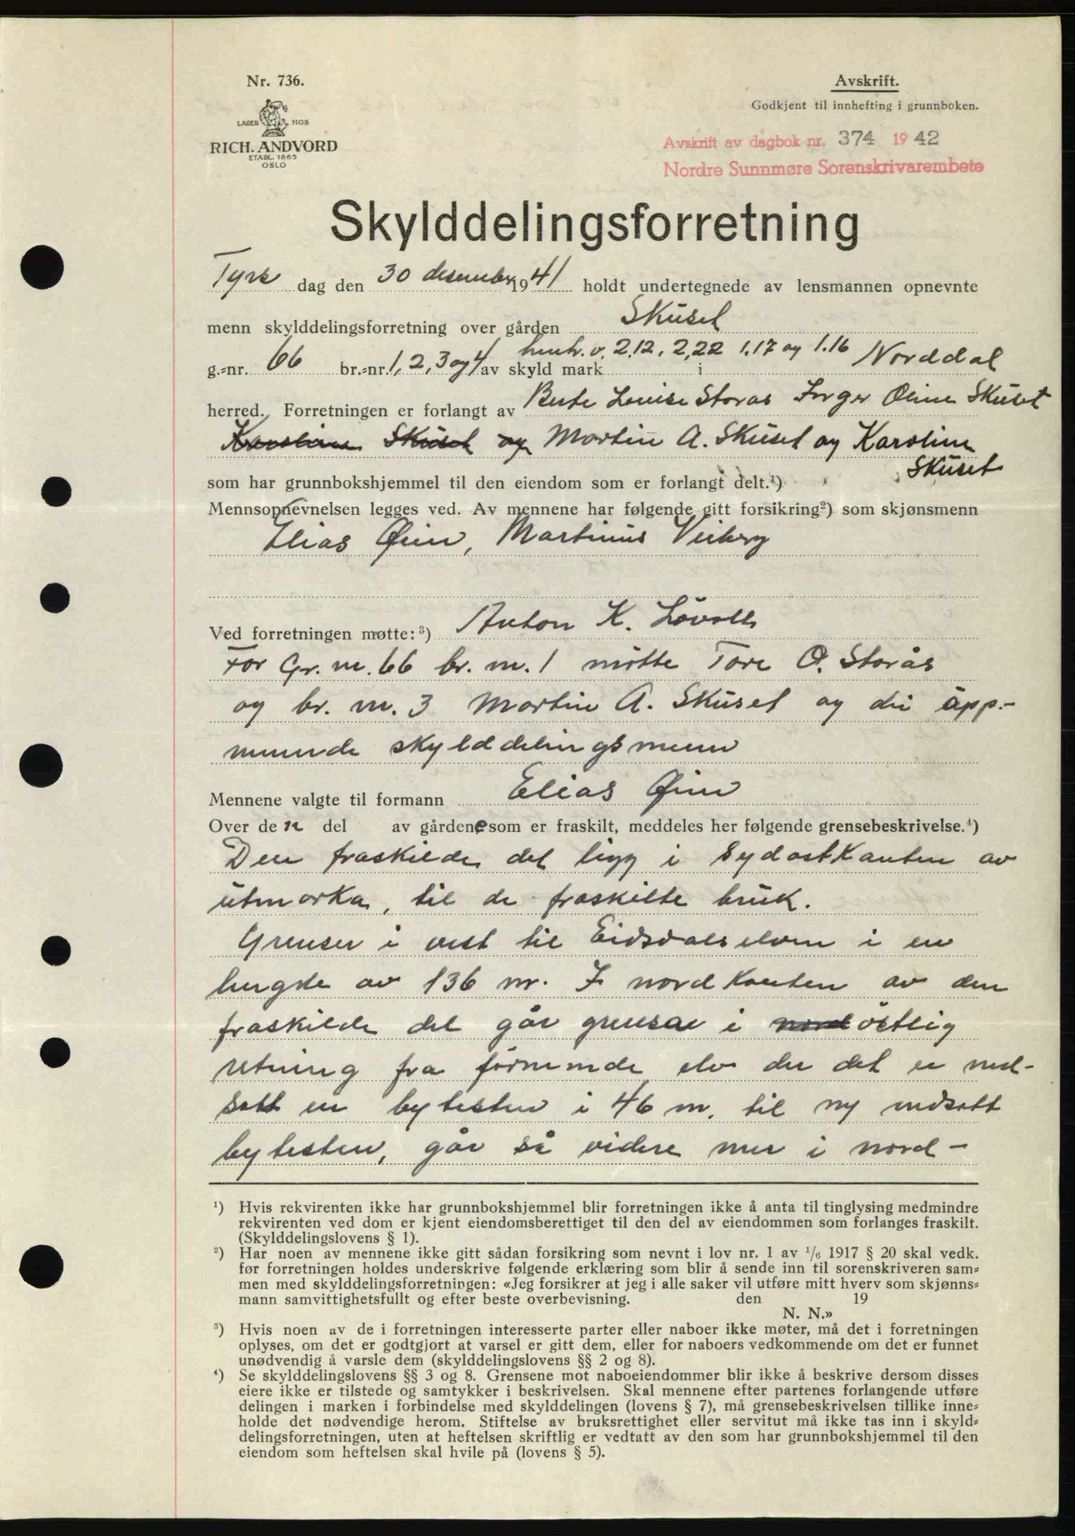 Nr. 736.
LAGER HOS
RICH. ANDVORD
ETABL. 1865
OSLO
Avskrift.
Godkjent til innhefting i grunnboken.
Avskrift av dagbok nr. 374 1942
Nordre Sunnmøre Sorenskrivarembete
Skylddelingsforretning
Tyrs dag den 30 desember 1941 holdt undertegnede av lensmannen opnevnte
menn skylddelingsforretning over gården Skuset
g.-nr. 66 br.-nr. 1, 2, 3 og 4 av skyld mark henh.v. 2,12, 2,22 1.17 og 1.16 i Norddal
herred. Forretningen er forlangt av Berte Lovise Storås Inger Øine Skuset
Karoline Skuset og Martin A. Skuset og Karoline
Skuset
som har grunnbokshjemmel til den eiendom som er forlangt delt.¹)
Mennsopnevnelsen legges ved. Av mennene har følgende gitt forsikring²) som skjønsmenn
Elias Øien, Martinus Veiberg
Anton K. Løvoll
Ved forretningen møtte:³)
For Gr. nr. 66 br. nr. 1 møtte Tore O. Storås
og br. nr. 3 Martin A. Skuset og dei opp.-
nemnde skylddelingsmenn
Mennene valgte til formann Elias Øien
Over den del av gårdene som er fraskilt, meddeles her følgende grensebeskrivelse.⁴)
Den fraskilde del ligg i sydostkanten av
utmarka, til de fraskilte bruk.
Grenser i vest til Eidsdalselven i en
lengde av 136 m. I nordkanten av den
fraskilde del går grensa i nord østlig
retning fra førnemde elv der det er ned-
satt en bytestein i 46 m. til ny nedsatt
bytestein, går så videre mer i nord-
¹) Hvis rekvirenten ikke har grunnbokshjemmel blir forretningen ikke å anta til tinglysing medmindre
rekvirenten ved dom er kjent eiendomsberettiget til den del av eiendommen som forlanges fraskilt.
(Skylddelingslovens § 1).
²) Har noen av mennene ikke gitt sådan forsikring som nevnt i lov nr. 1 av ¹/₆ 1917 § 20 skal vedk.
før forretningen holdes underskrive følgende erklæring som blir å sende inn til sorenskriveren sam-
men med skylddelingsforretningen: «Jeg forsikrer at jeg i alle saker vil utføre mitt hverv som skjønns-
mann samvittighetsfullt og efter beste overbevisning. den 19
N. N.»
³) Hvis noen av de i forretningen interesserte parter eller naboer ikke møter, må det i forretningen
oplyses, om det er godtgjort at varsel er gitt dem, eller for naboers vedkommende om det er funnet
unødvendig å varsle dem (skylddelingslovens §§ 2 og 8).
⁴) Se skylddelingslovens §§ 3 og 8. Grensene mot naboeiendommer blir ikke å beskrive dersom disses
eiere ikke er tilstede og samtykker i beskrivelsen. Skal mennene efter partenes forlangende utføre
delingen i marken i forbindelse med skylddelingen (lovens § 7), må grensebeskrivelsen tillike inne-
holde det nødvendige herom. Stiftelse av bruksrettighet eller servitut må ikke tas inn i skyld-
delingsforretningen, uten at heftelsen skriftlig er vedtatt av den som har grunnbokshjemmel til den
eiendom som heftelsen skal hvile på (lovens § 5).